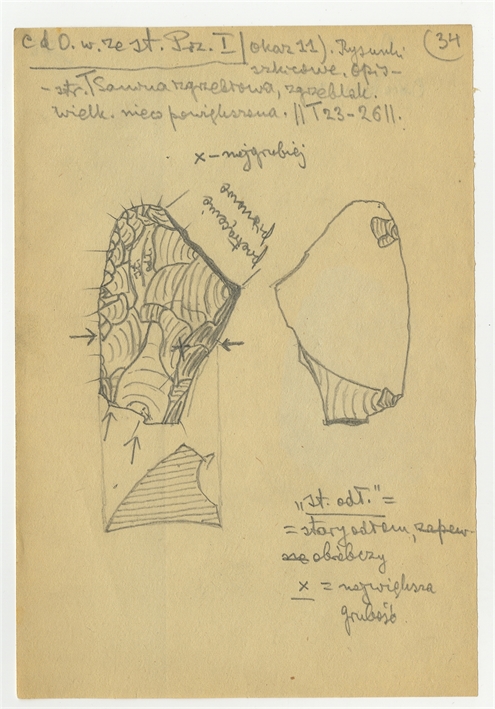 c d O. w. ze st. Prz. I (okaz 11). Rysunki
(34)
szkicowe. Opis-
- str. T Sauna zgrzebłowa, zgrzebłak.
wielk. nieco powiększona. || T23-26 ||.
x - najgrubiej
pierwotne
st. odł.
„st. odł." =
= stary odłam, zapew-
obróbczy
x = największa
grubość